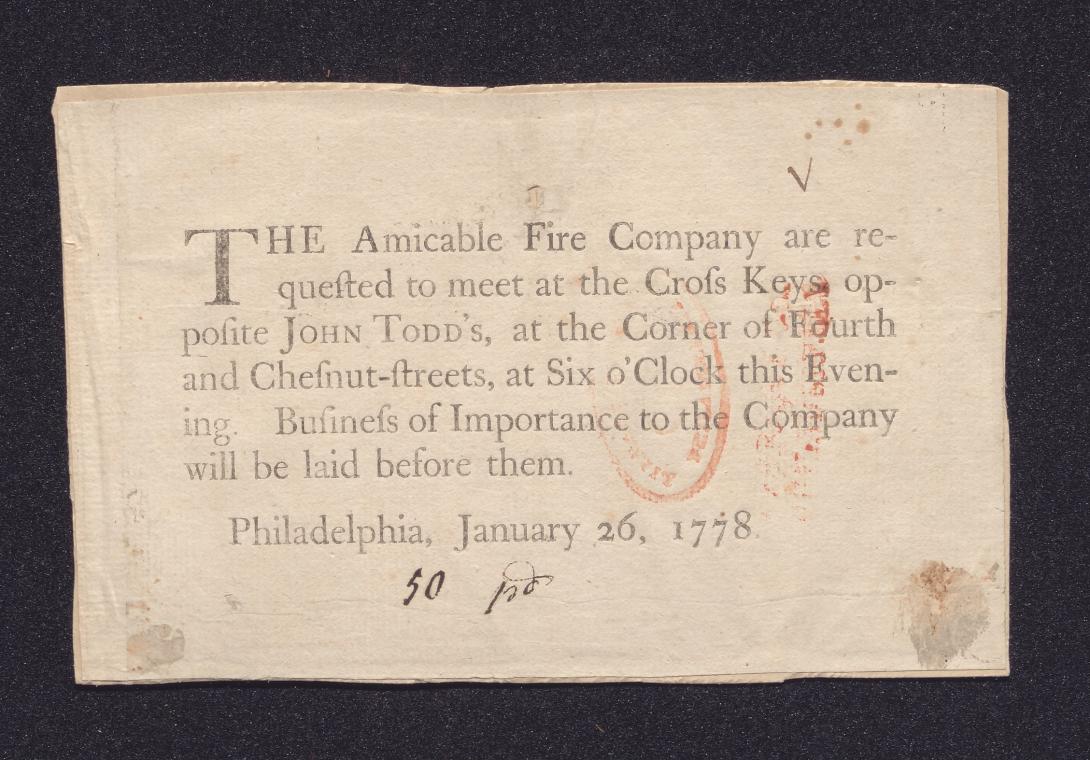 THE Amicable Fire Company are re-
queſted to meet at the Croſs Keys, op-
poſite JOHN TODD's, at the Corner of Fourth
and Cheſnut-ſtreets, at Six o'Clock this Even-
ing. Buſineſs of Importance to the Company
will be laid before them.
Philadelphia, January 26, 1778.
50 pd